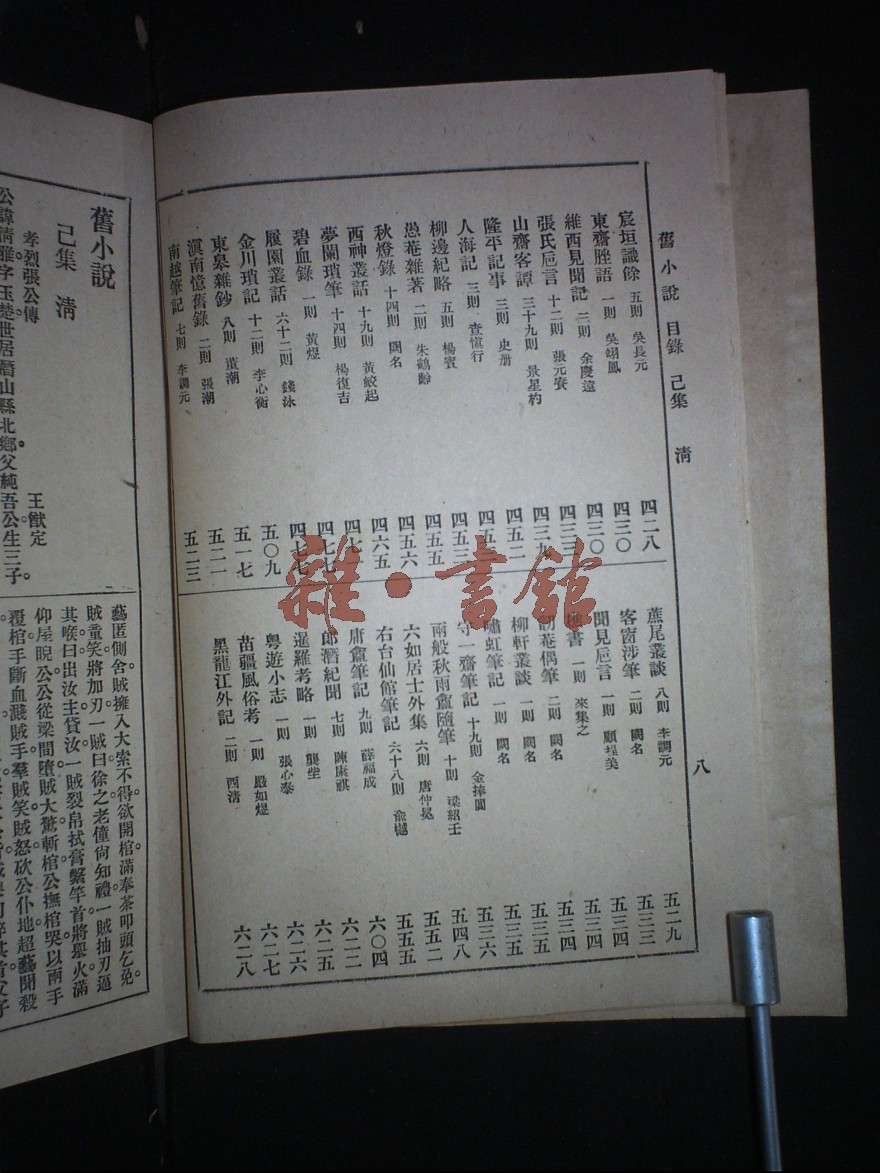 舊小說 目錄 己集 清
八
宸垣識餘 五則 吳長元 四二八
東齋脞語 一則 吳翊鳳 四三〇
維西見聞記 三則 余慶遠 四三〇
張氏巵言 十二則 張元賡 四三三
山齋客譚 三十九則 景星杓 四三九
隆平記事 三則 史册 四五二
人海記 三則 查慎行
柳邊紀略 五則 楊賓 四五三
愚菴雜著 二則 朱鶴齡 四五五
秋燈錄 十四則 闕名 四五六
西神叢話 十九則 黃蛟起 四六五
夢闌瑣筆 十四則 楊復吉
碧血錄 一則 黃煜 四七七
履園叢話 六十二則 錢泳 四七七
金川瑣記 十二則 李心衡 五〇九
東皋雜鈔 八則 董潮 五一七
滇南憶舊錄 二則 張潮 五二一
南越筆記 七則 李調元 五二三
蔗尾叢談 八則 李調元 五二九
客窗涉筆 二則 闕名 五三三
聞見巵言 一則 顧珵美 五三四
書 一則 來集之 五三四
菴偶筆 二則 闕名 五三四
柳軒叢談 一則 闕名 五三五
嘯虹筆記 一則 闕名 五三五
守一齋筆記 十九則 金捧閶 五三六
兩般秋雨盦隨筆 十則 梁紹壬 五四八
六如居士外集 六則 唐仲冕 五五二
右台仙館筆記 六十八則 俞樾 五五五
庸盦筆記 九則 薛福成 六〇四
郎潛紀聞 七則 陳康祺 六二二
暹羅考略 一則 龔柴 六二五
粵遊小志 一則 張心泰 六二六
苗疆風俗考 一則 嚴如煜 六二七
黑龍江外記 二則 西清 六二八
舊小說
己集 清
孝烈張公傳
王猷定
公諱清雅字玉楚世居潛山縣北鄉父純吾公生三子。
藝匿側舍賊擁入大索不得欲開棺滿奉茶叩頭乞免。
賊童笑將加刃一賊曰徐之老僮尚知禮一賊抽刃逼
其喉曰出汝主貸汝一賊裂帛拭膏繫竿首將舉火滿
仰屋睨公公從梁間墮賊大驚斬棺公撫棺哭以兩手
覆棺手斷血濺賊手羣賊笑賊怒砍公仆地超藝聞殺
雜·書館